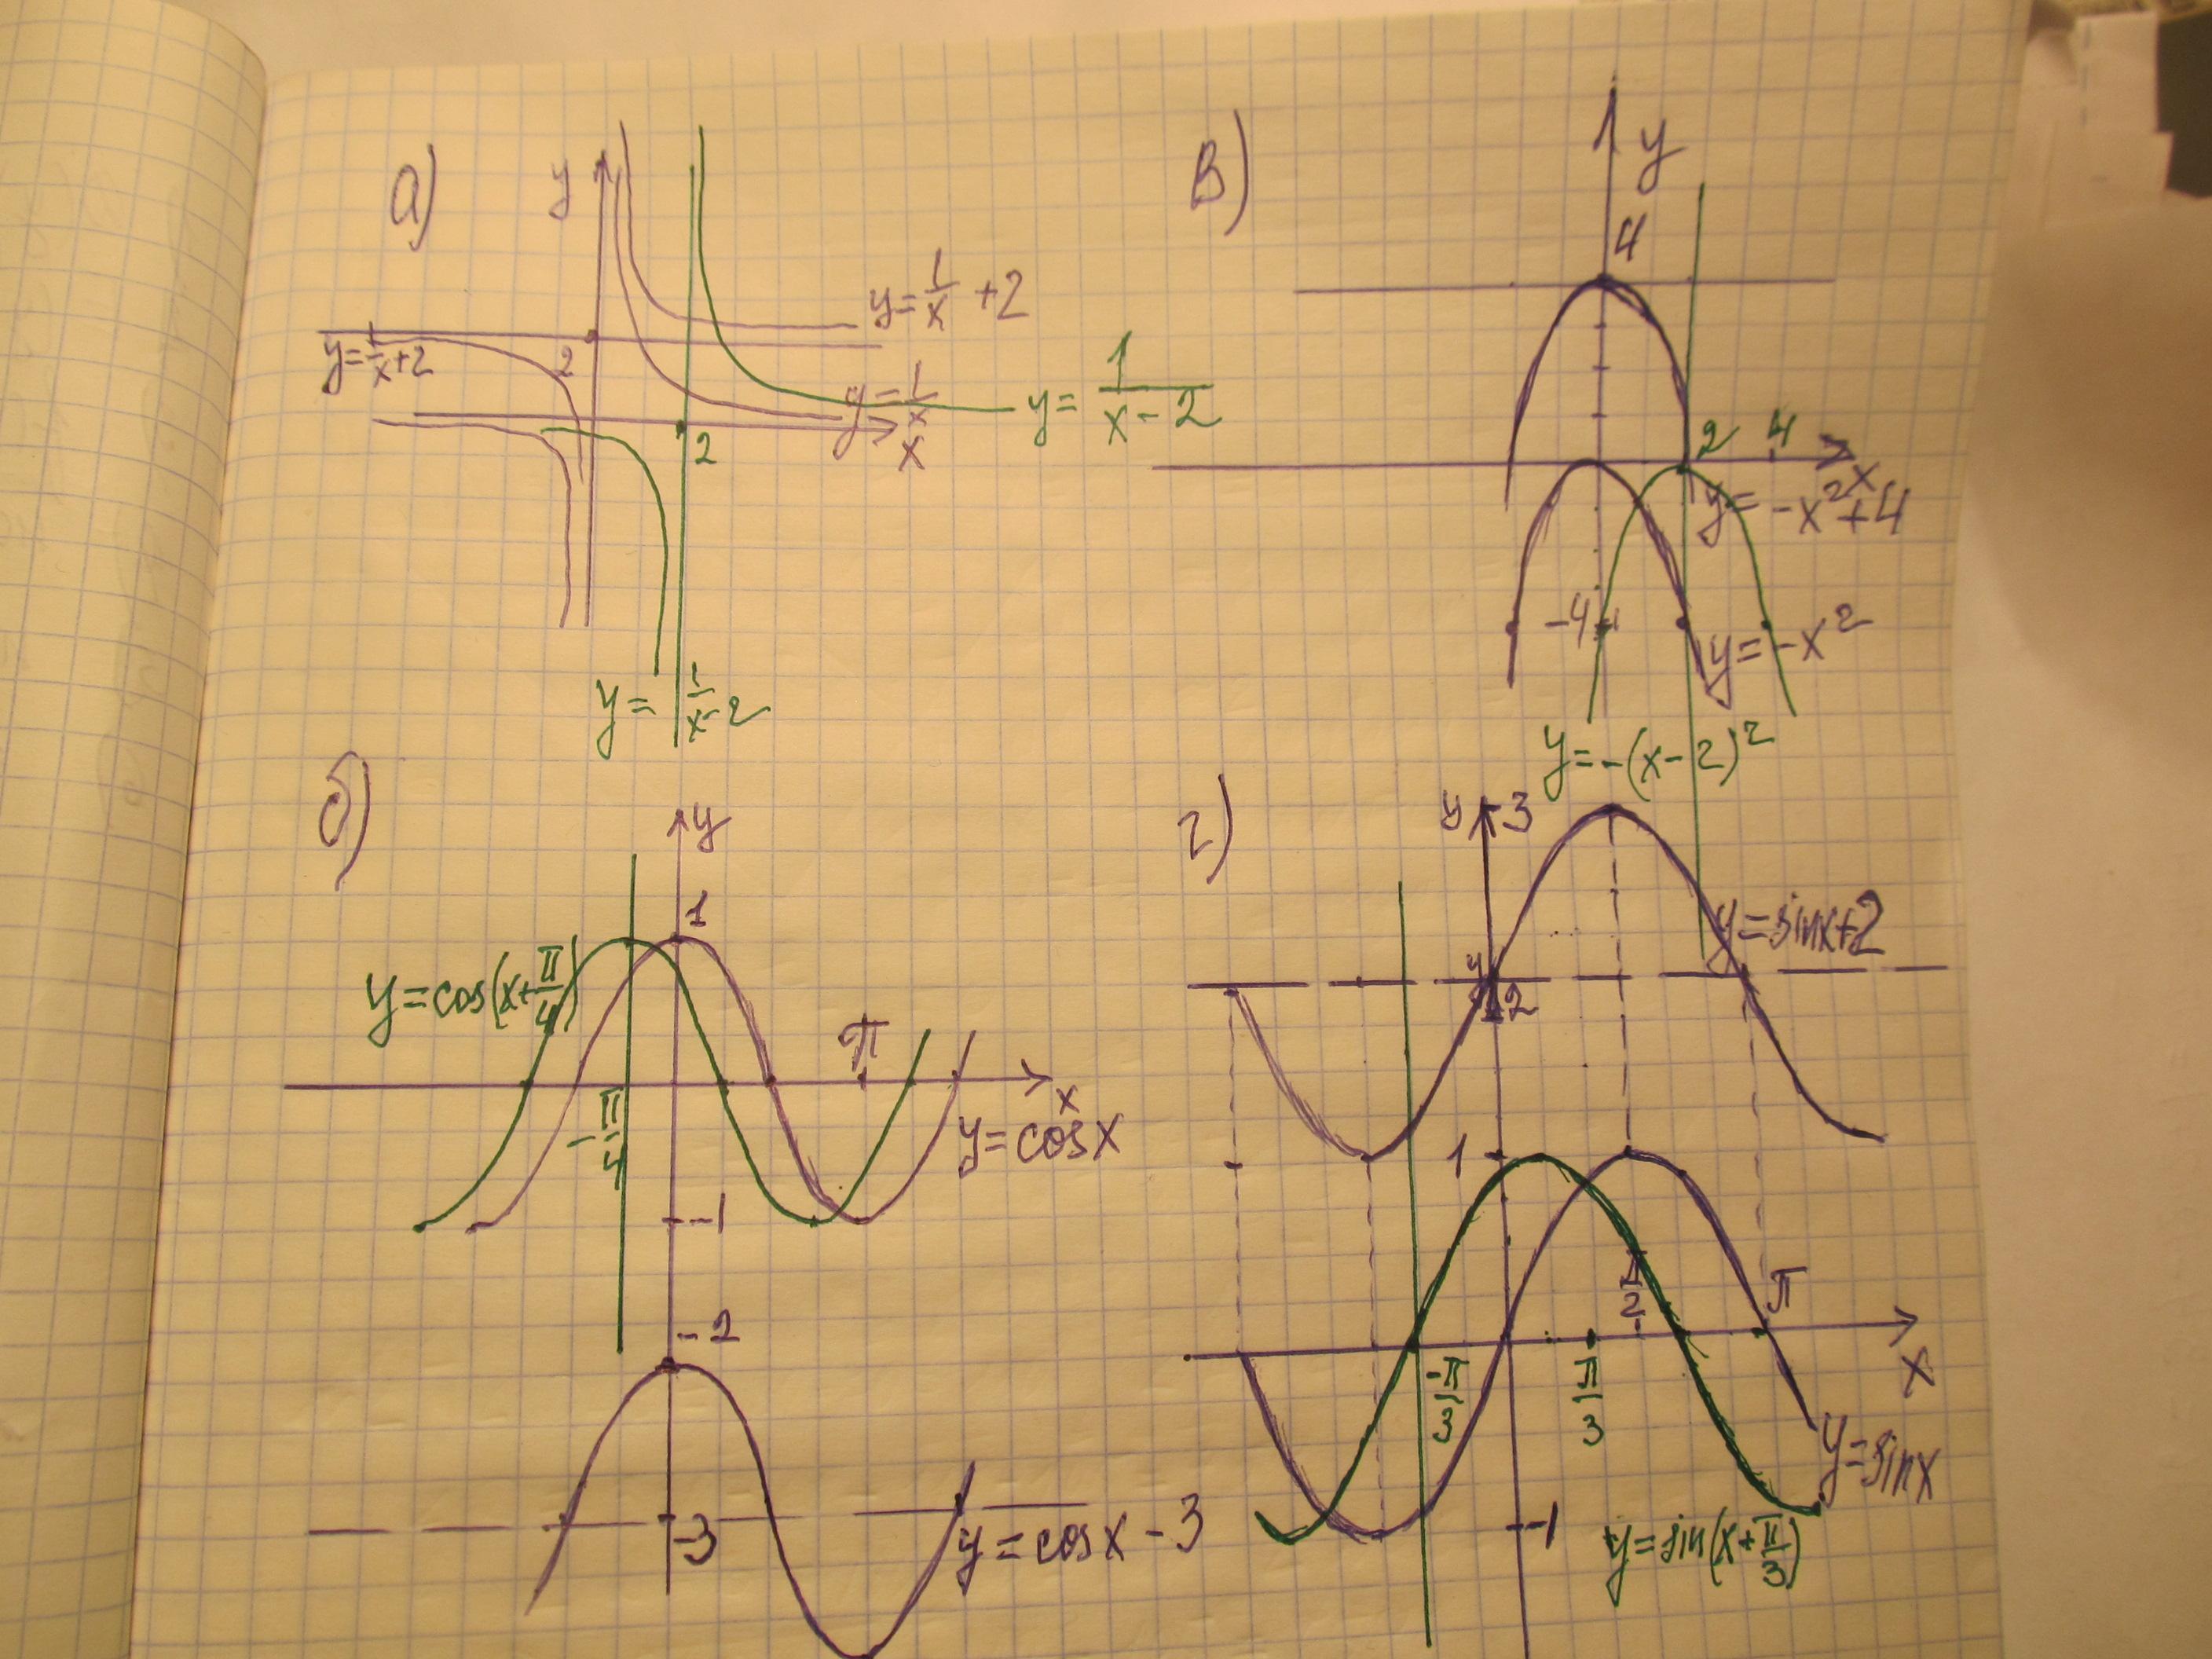 а)
y
y = 1/x + 2
y = 1/x + 2
2
y = 1/x
x
y = 1/(x - 2)
2
y = 1/(x - 2)
в)
y
4
2
4
x
y = -x² + 4
-4
y = -x²
y = -(x - 2)²
б)
y
1
y = cos(x + π/4)
π
x
-π/4
y = cos x
-1
-2
-3
y = cos x - 3
г)
y
3
y = sin x + 2
y
2
1
π/2
π
-π/3
π/3
x
y = sin x
-1
y = sin(x + π/3)